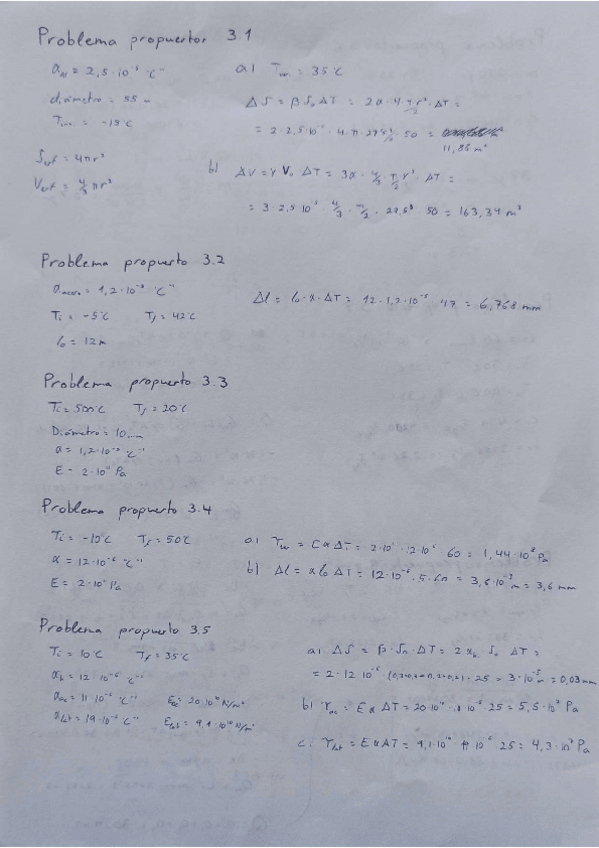 Problema propuesto 3.1
α_Al = 2,5·10⁻⁵ °C⁻¹
diámetro = 55 m
T = -15°C
S_esf = 4πr²
V_esf = 4/3 πr³
a) T = 35°C
ΔS = β S₀ ΔT = 2α · 4 πr²/2 · ΔT =
= 2·2,5·10⁻⁵ · 4·π·27,5²/2 · 50 =
11,88 m²
b) ΔV = γ V₀ ΔT = 3α · 4/3 · π/2 r³ · ΔT =
= 3·2,5·10⁻⁵ · 4/3 · π/2 · 27,5³ 50 = 163,34 m³
Problema propuesto 3.2
α_acero = 1,2·10⁻⁵ °C⁻¹
Ti = -5°C Tf = 42°C
l₀ = 12m
Δl = l₀·α·ΔT = 12·1,2·10⁻⁵ 47 = 6,768 mm
Problema propuesto 3.3
Ti = 500°C Tf = 20°C
Diámetro = 10 mm
α = 1,2·10⁻⁵ °C⁻¹
E = 2·10¹¹ Pa
Problema propuesto 3.4
Ti = -10°C Tf = 50°C
α = 12·10⁻⁶ °C⁻¹
E = 2·10¹¹ Pa
a) = E α ΔT = 2·10¹¹ ·12·10⁻⁶ · 60 = 1,44·10⁸ Pa
b) Δl = α l₀ ΔT = 12·10⁻⁶ · 5·60 = 3,6·10⁻³ m = 3,6 mm
Problema propuesto 3.5
Ti = 10°C Tf = 35°C
α_h = 12·10⁻⁶ °C⁻¹
α_ac = 11·10⁻⁶ °C⁻¹ E_ac = 20·10¹⁰ N/m²
α_lat = 19·10⁻⁶ °C⁻¹ E_lat = 9,1·10¹⁰ N/m²
a) ΔS = β · S₀ · ΔT = 2 α_h · S₀ ΔT =
= 2·12·10⁻⁶ · 25 = 3·10⁻⁵ m = 0,03 mm
b) = E α ΔT = 20·10¹⁰ · 10⁻⁶ 25 = 5,5·10⁷ Pa
c. = E α ΔT = 9,1·10¹⁰ 10⁻⁶ 25 = 4,3·10⁷ Pa